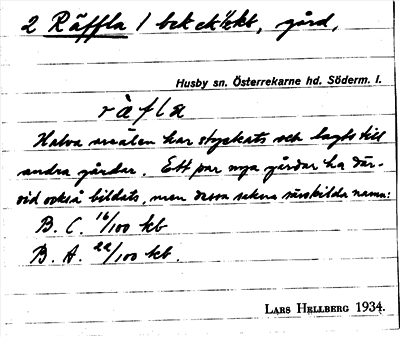 2 Räffla 1 bek ek½ekt, gård,
Husby sn. Österrekarne hd. Söderm. l.
ràfla
Halva arealen har styckats och lagts till
andra gårdar. Ett par nya gårdar ha där-
vid också bildats, men dessa sakna särskilda namn:
B. C. 16/100 kb
B. A. 22/100 kb.
LARS HELLBERG 1934.